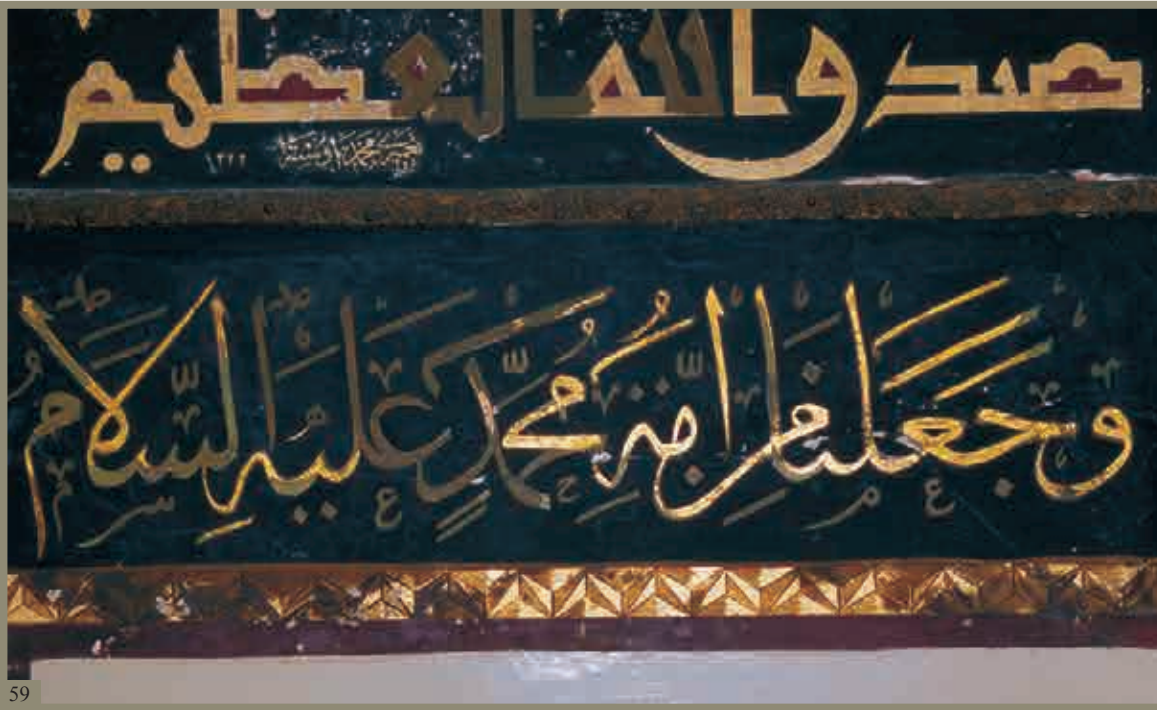 صدق الله العظيم
وجعلنا من امة محمد عليه السلام
59